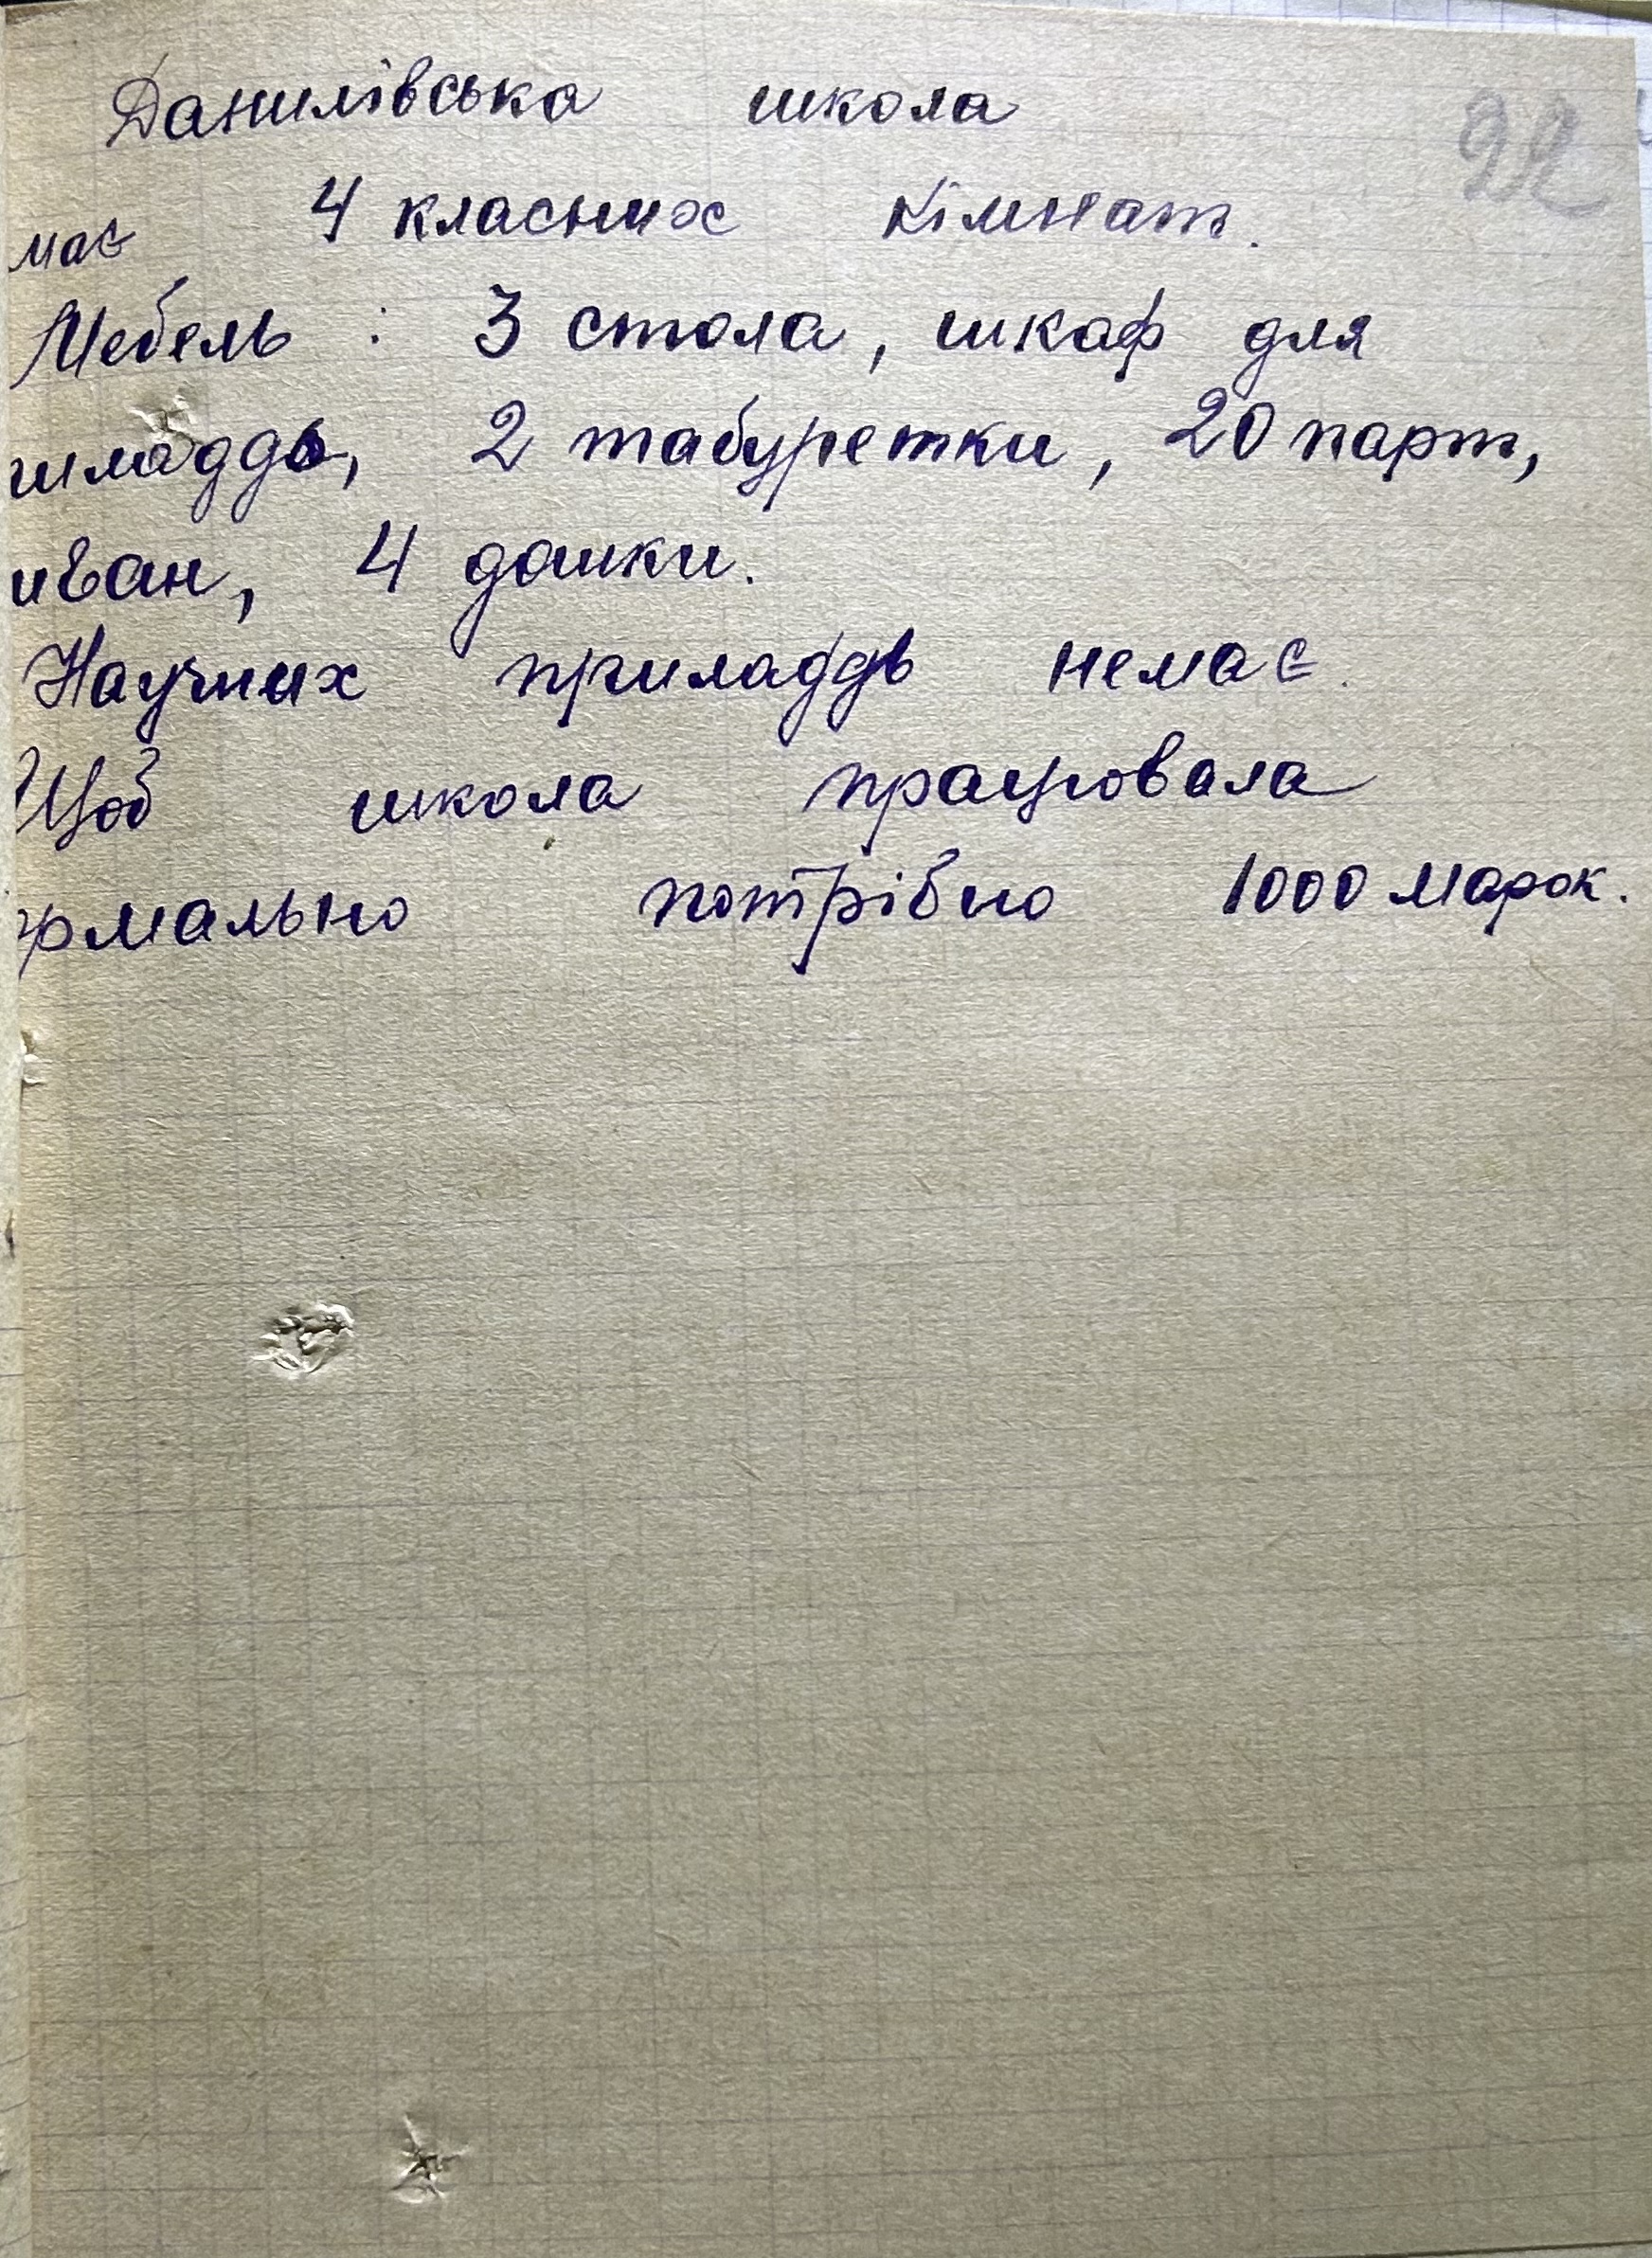 Данилівська школа
22
має 4 класних кімнат.
Мебель: 3 стола, шкаф для
иладдь, 2 табуретки, 20 парт,
иван, 4 дошки.
Научних приладдь немає.
Щоб школа працювала
рмально потрібно 1000 марок.